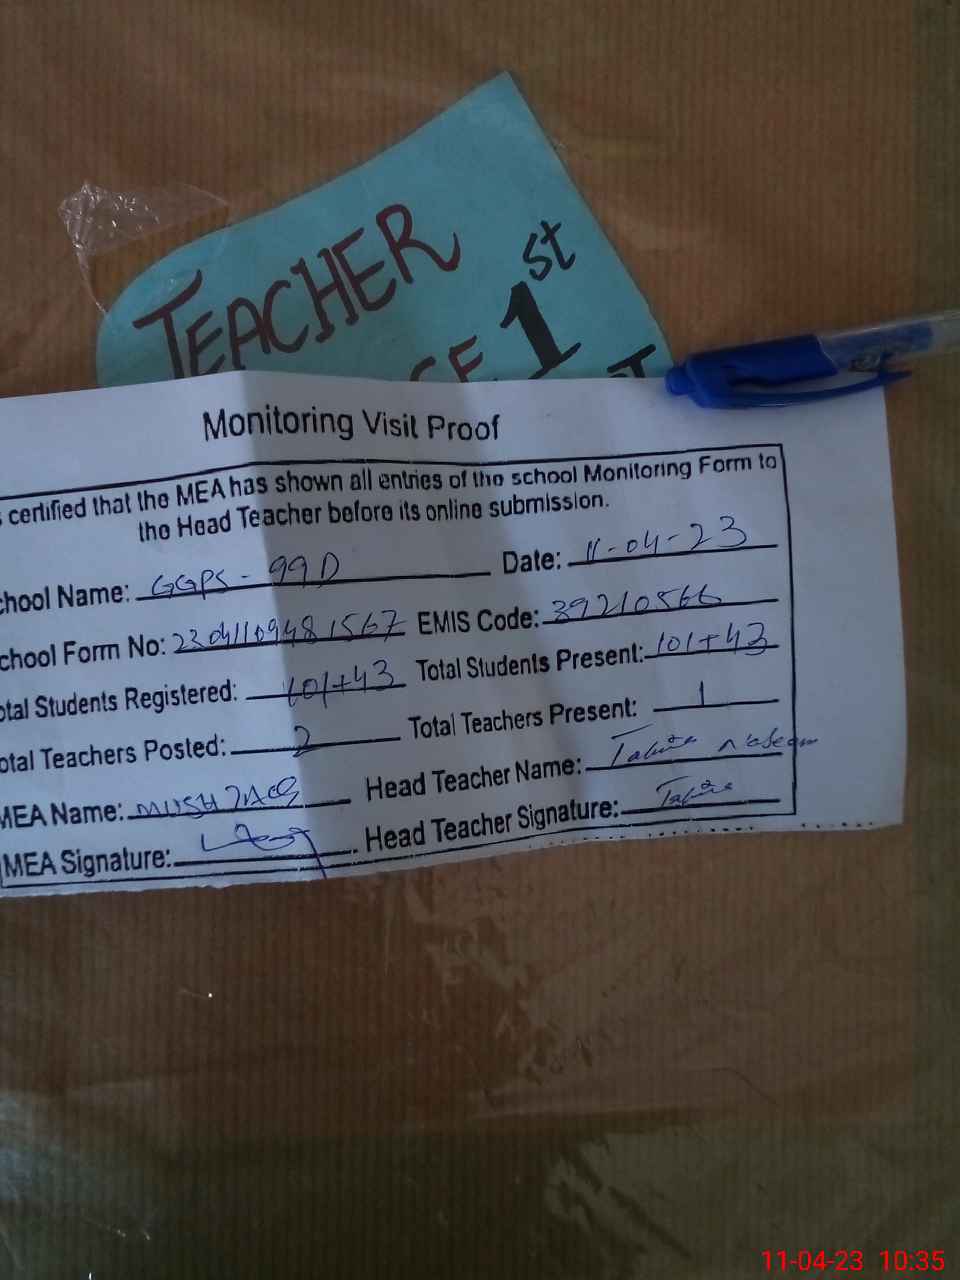 TEACHER
1st
Monitoring Visit Proof
certified that the MEA has shown all entries of the school Monitoring Form to
the Head Teacher before its online submission.
chool Name: GGPS - 99D Date: 11-04-23
chool Form No: 23041109481567 EMIS Code: 39210566
otal Students Registered: 101+43 Total Students Present: 101+43
otal Teachers Posted: 2 Total Teachers Present: 1
MEA Name: MUSHTAQ Head Teacher Name: Tahira Naseem
MEA Signature: Head Teacher Signature: Tahira
11-04-23 10:35